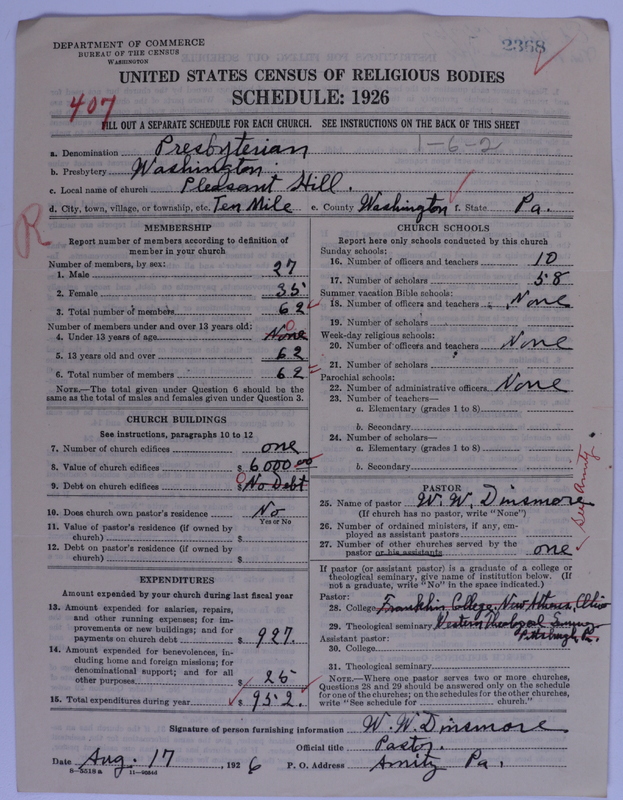 DEPARTMENT OF COMMERCE
BUREAU OF THE CENSUS
WASHINGTON
2368
UNITED STATES CENSUS OF RELIGIOUS BODIES
SCHEDULE: 1926
407
FILL OUT A SEPARATE SCHEDULE FOR EACH CHURCH. SEE INSTRUCTIONS ON THE BACK OF THIS SHEET
1-6-2
a. Denomination Presbyterian
b. Presbytery Washington
c. Local name of church Pleasant Hill.
d. City, town, village, or township, etc. Ten Mile e. County Washington f. State Pa.
R
MEMBERSHIP
Report number of members according to definition of
member in your church
Number of members, by sex:
1. Male 27
2. Female 35
3. Total number of members 62
Number of members under and over 13 years old:
4. Under 13 years of age None 0
5. 13 years old and over 62
6. Total number of members 62
NOTE.—The total given under Question 6 should be the
same as the total of males and females given under Question 3.
CHURCH BUILDINGS
See instructions, paragraphs 10 to 12
7. Number of church edifices one
8. Value of church edifices $ 6000.00
9. Debt on church edifices $ No Debt 0
10. Does church own pastor's residence? No
Yes or No
11. Value of pastor's residence (if owned by
church) $
12. Debt on pastor's residence (if owned by
church) $
EXPENDITURES
Amount expended by your church during last fiscal year
13. Amount expended for salaries, repairs,
and other running expenses; for im-
provements or new buildings; and for
payments on church debt $ 927.
14. Amount expended for benevolences, in-
cluding home and foreign missions; for
denominational support; and for all
other purposes $ 25
15. Total expenditures during year $ 952.
CHURCH SCHOOLS
Report here only schools conducted by this church
Sunday schools:
16. Number of officers and teachers 10
17. Number of scholars 58
Summer vacation Bible schools:
18. Number of officers and teachers None
19. Number of scholars
Week-day religious schools:
20. Number of officers and teachers None
21. Number of scholars
Parochial schools:
22. Number of administrative officers None
23. Number of teachers—
a. Elementary (grades 1 to 8)
b. Secondary
24. Number of scholars—
a. Elementary (grades 1 to 8)
b. Secondary
PASTOR
25. Name of pastor W. W. Dinsmore
(If church has no pastor, write "None")
26. Number of ordained ministers, if any, em-
ployed as assistant pastors
27. Number of other churches served by the
pastor or his assistants one
See Amity
If pastor (or assistant pastor) is a graduate of a college or
theological seminary, give name of institution below. (If
not a graduate, write "No" in the space indicated.)
Pastor:
28. College Franklin College, New Athens, Ohio
29. Theological seminary Western Theological Seminary
Pittsburgh, Pa.
Assistant pastor:
30. College
31. Theological seminary
NOTE.—Where one pastor serves two or more churches,
Questions 28 and 29 should be answered only on the schedule
for one of the churches; on the schedules for the other churches,
write "See schedule for church."
Signature of person furnishing information W. W. Dinsmore
Official title Pastor.
Date Aug. 17, 1926 P. O. Address Amity Pa.